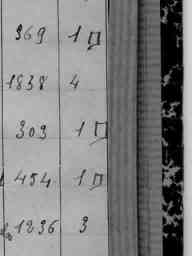 369 1
1838 4
303 1
454 1
1236 3